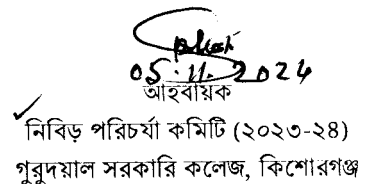 05.11.2024
আহবায়ক
নিবিড় পরিচর্যা কমিটি (২০২৩-২৪)
গুরুদয়াল সরকারি কলেজ, কিশোরগঞ্জ